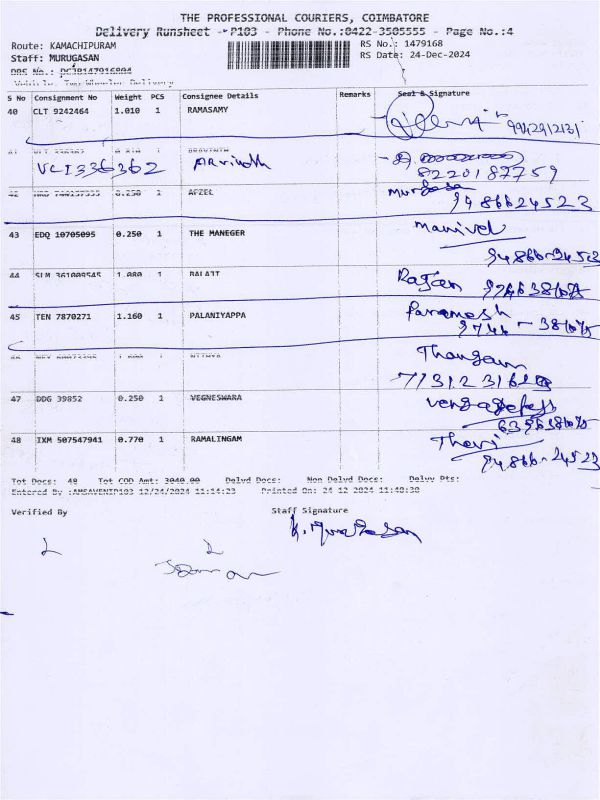 THE PROFESSIONAL COURIERS, COIMBATORE
Delivery Runsheet - P103 - Phone No.:0422-3505555 - Page No.:4
Route: KAMACHIPURAM RS No.: 1479168
Staff: MURUGASAN RS Date: 24-Dec-2024
DRS No.:
Vehicle: Two Wheeler Delivery
S No Consignment No Weight PCS Consignee Details Remarks Seal & Signature
40 CLT 9242464 1.010 1 RAMASAMY
9942912131
41 1 ARAVINTH
VCI336362 Arvinth
8220187759
42 0.250 1 AFZEL Murugasan
9486624523
43 EDQ 10705095 0.250 1 THE MANEGER Manivel
94866-24523
44 SLM 361009545 1.080 1 BALAJI Rajan
45 TEN 7870271 1.160 1 PALANIYAPPA Paramesh
46 1 NITHYA Thangam
47 DDG 39852 0.250 1 VEGNESWARA
48 IXM 507547941 0.770 1 RAMALINGAM
94866-24523
Tot Docs: 48 Tot COD Amt: 3040.00 Delvd Docs: Non Delvd Docs: Delvy Pts:
Entered By :AMSAVENIP103 12/24/2024 11:14:23 Printed On: 24-12-2024 11:48:38
Verified By Staff Signature
K. Murugasan